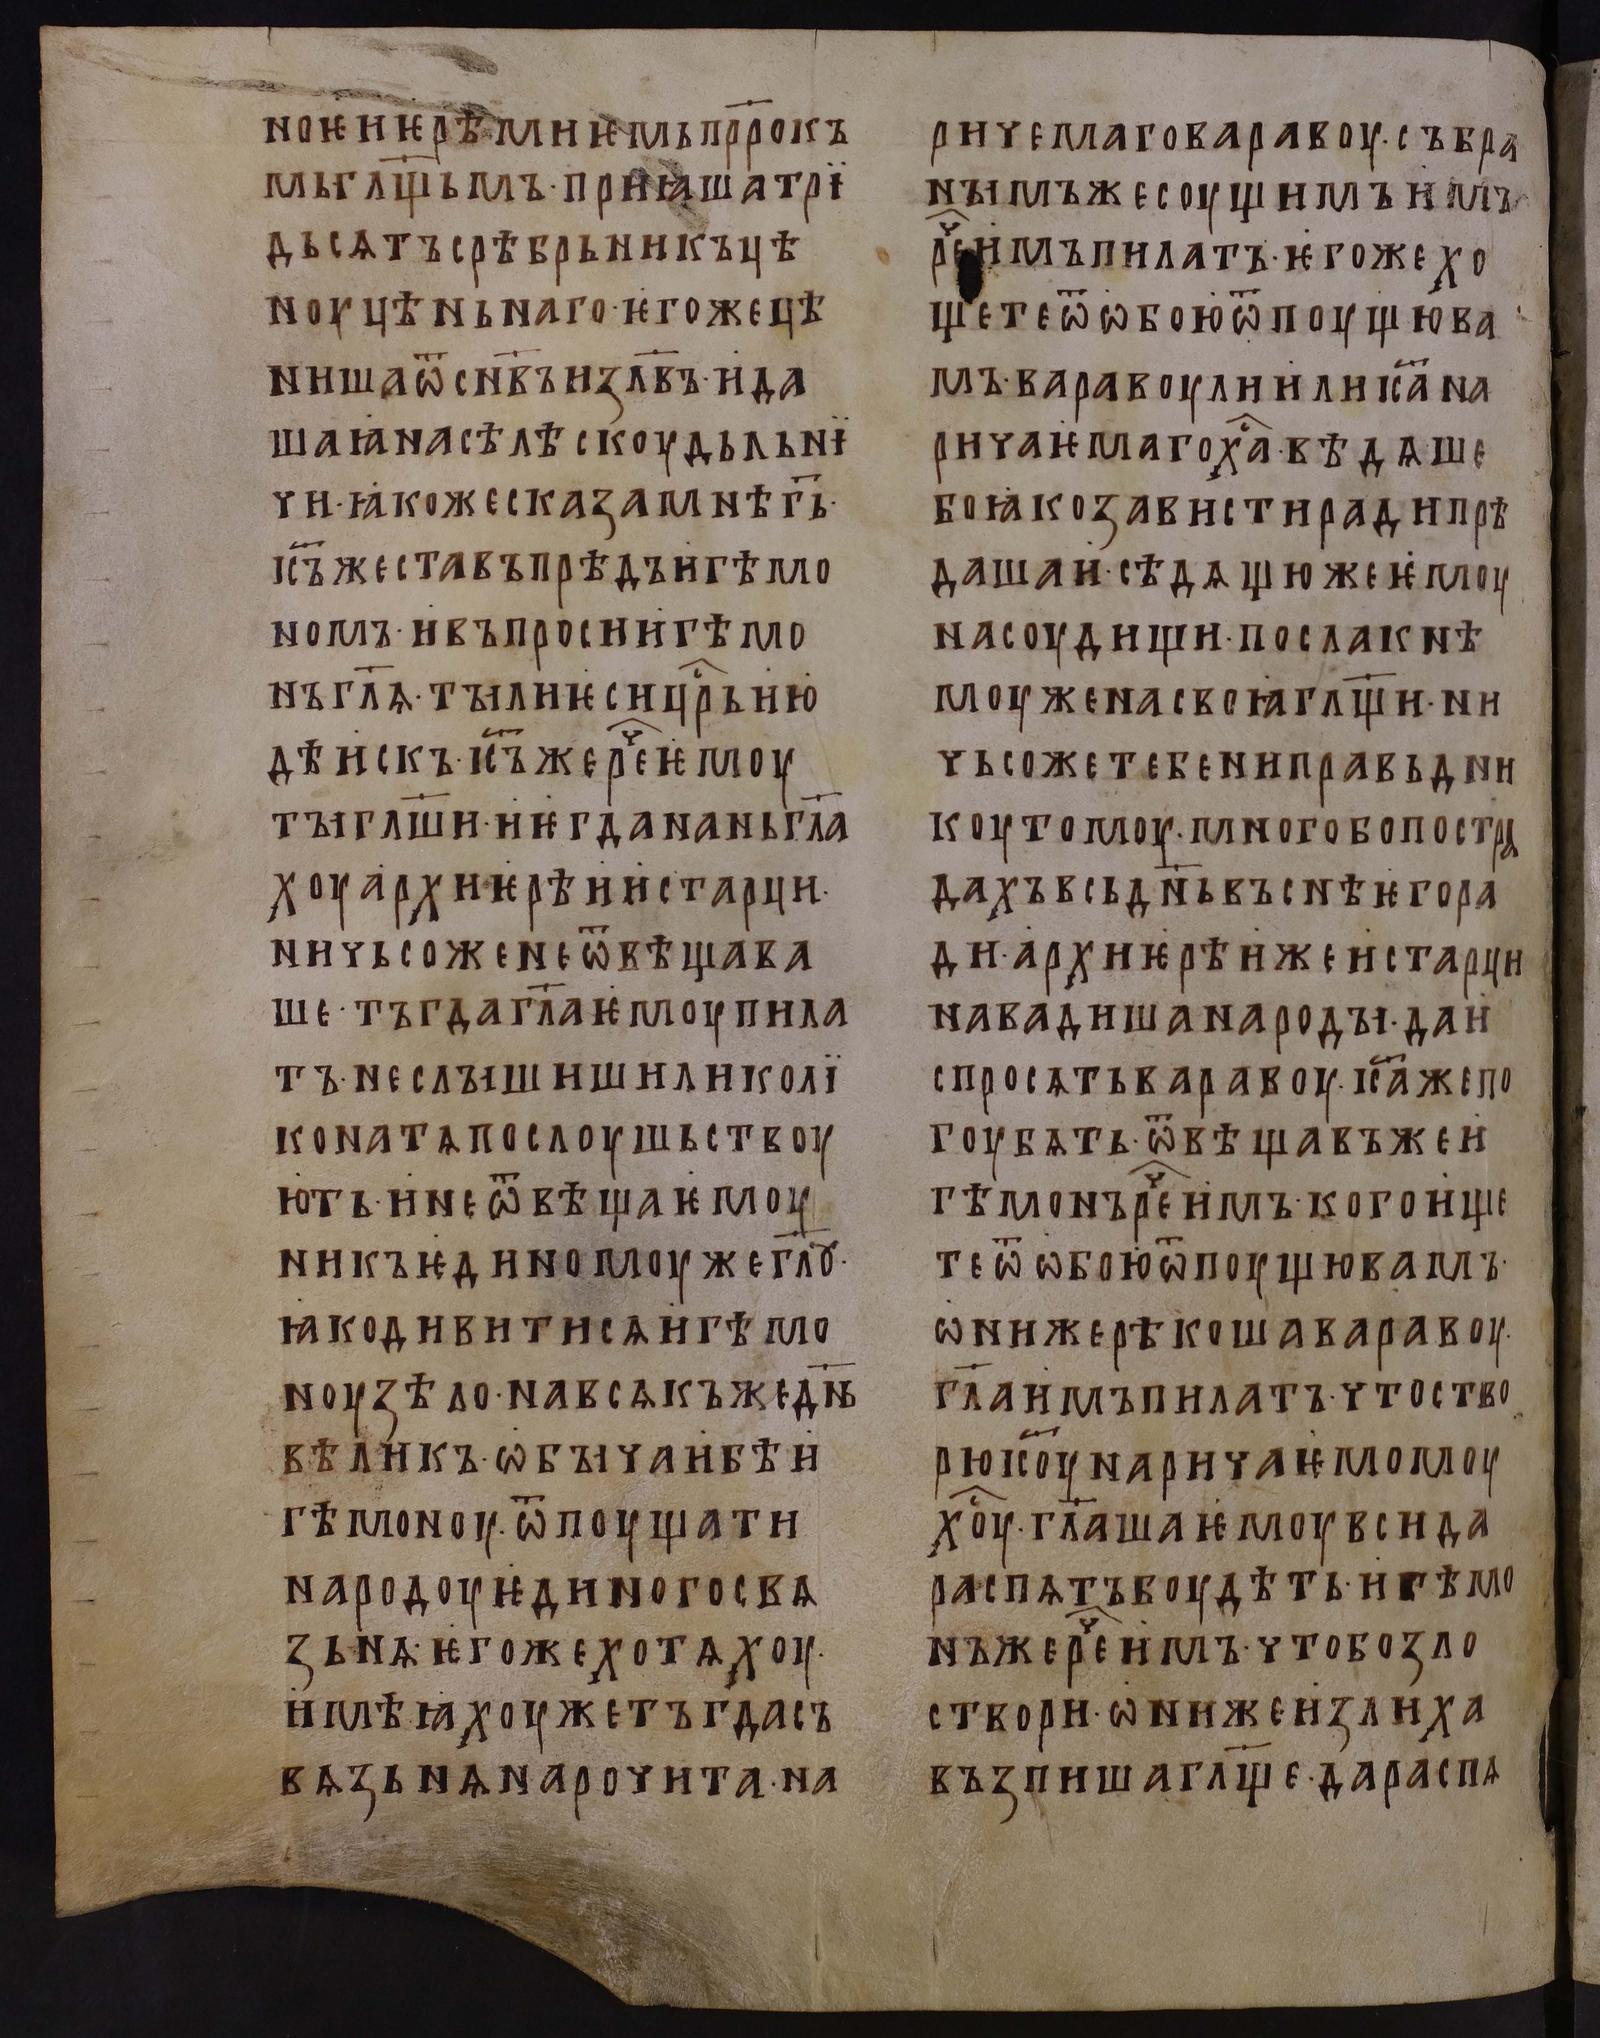 ноѥ и ѥрѣмиѥмь пррⷪ҇окъ
мь гл҃щьмъ· приꙗша трї
дьсѧтъ срѣбрьникъ цѣ
ноу цѣньнаго· ѥгоже цѣ
ниша ѿ сн҃въ из҃лвъ· и да
ша ꙗ на сѣлѣ скоудьльнї
чи· ꙗкоже сказа мнѣ г҃ь·
іс҃ъ же ставъ прѣдъ игѣмо
номъ· и въпроси и игѣмо
нъ гл҃ѧ· ты ли ѥси цр҇ь ию
дѣискъ· іс҃ъ же рⷱ҇е ѥмоу
ты гл҃ши· и ѥгда на нь гл҃а
хоу архиѥрѣи и старци·
ничьсоже не ѿвѣщава
ше· тъгда гл҃а ѥмоу пила
тъ· не слышиши ли колї
ко на тѧ послоушьствоу
ють· и не ѿвѣща ѥмоу
ни къ ѥдиномоу же гл҃оу·
ꙗко дивити сѧ игѣмо
ноу зѣло· на всѧкъ же дн҃ь
вѣликъ· ѡбычаи бѣ и
гѣмоноу· ѿпоущати
народоу ѥдиного свѧ
зьнѧ· ѥгоже хотѧхоу·
имѣꙗхоу же тъгда съ
вѧзьнѧ нарочита· на
ричемаго варавоу· събра
нымъ же соущимъ имъ
рⷱ҇е имъ пилатъ· ѥгоже хо
щете ѿ ѡбою ѿпоущю ва
мъ· варавоу ли или іс҃а на
ричаѥмаго х҇а· вѣдѧше
бо ꙗко зависти ради прѣ
даша и· сѣдѧщю же ѥмоу
на соудищи· посла к нѣ
моу жена своꙗ гл҃щи· ни
чьсоже тебе ни правьдни
коу томоу· много бо постра
дахъ всь дн҃ь въ снѣ ѥго ра
ди· архиѥрѣи же и старци
навадиша народы· да и
спросѧть варавоу· іс҃а же по
гоубѧть· ѿвѣщавъ же и
гѣмонъ рⷱ҇е имъ· кого ище
те ѿ ѡбою ѿпоущю вамъ·
ѡни же рѣкоша варавоу·
гл҃а имъ пилатъ· что ство
рю іс҃оу наричаѥмомоу
х҇оу· гл҃аша ѥмоу вси да
распѧтъ боудѣть· игѣмо
нъ же рⷱ҇е имъ· что бо зло
створи· ѡни же излиха
възпиша гл҃ще· да распѧ